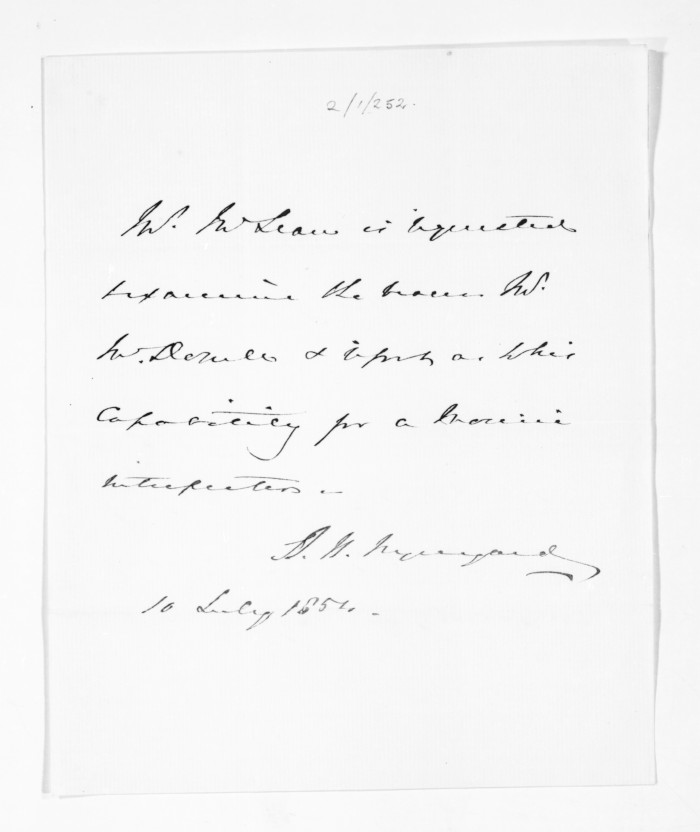 2/1/252.
Mr. McLean is requested
to examine the bearer Mr.
McDonell & report as to his
capability for a Provincial
interpreter.
R. H. Wynyard
10 July 1854.